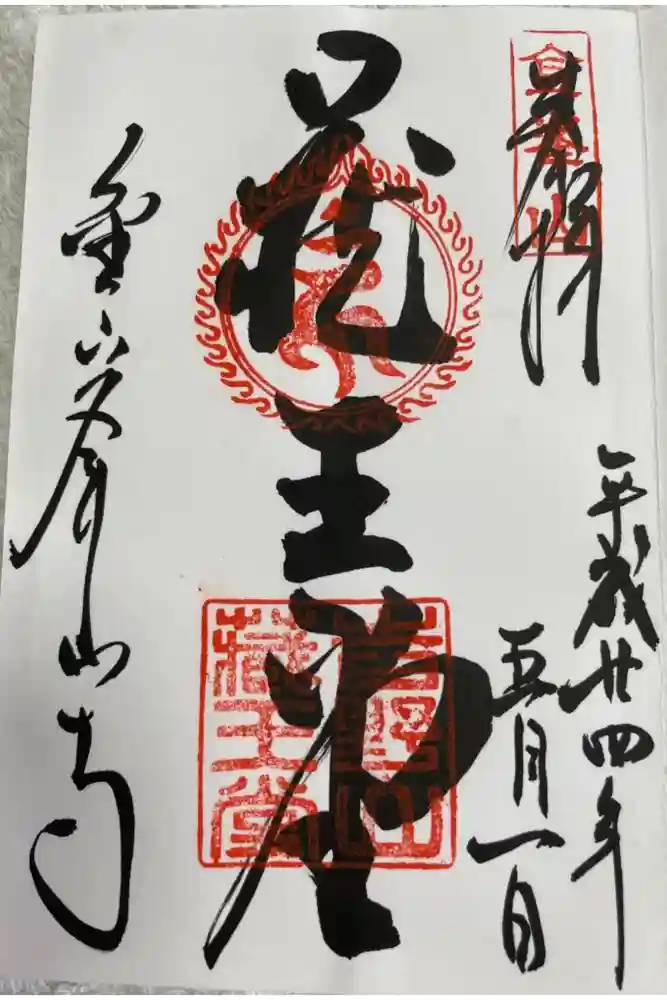 奉拝
平成廿四年
五月一日
蔵王堂
吉野山
藏王堂
金峯山寺